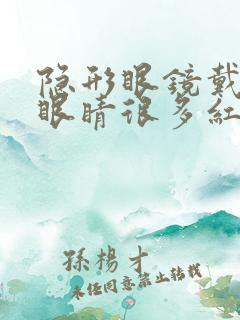 隐形眼镜戴
眼睛很多红
孫楊才
未经同意禁止转载